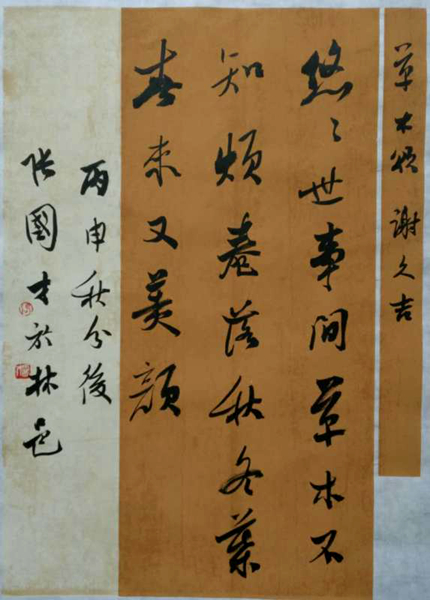 草木颂 谢久吉
悠〻世事间草木不
知烦卷落秋冬葉
春来又美颜
丙申秋分後
张國才於林邑